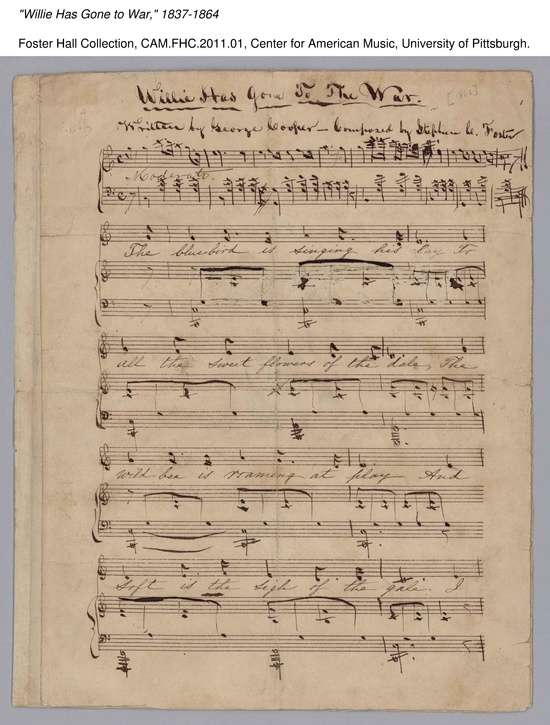 "Willie Has Gone to War," 1837-1864
Foster Hall Collection, CAM.FHC.2011.01, Center for American Music, University of Pittsburgh.
Willie Has Gone To The War.
Written by George Cooper — Composed by Stephen C. Foster
Moderato.
The bluebird is singing his lay To
all the sweet flowers of the dale, The
wild bee is roaming at play And
Soft is the sigh of the gale. I